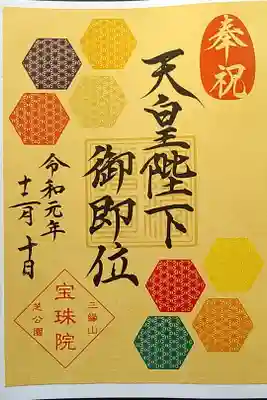 奉祝
天皇陛下
御即位
令和元年
十一月十日
三縁山
宝珠院
芝公園